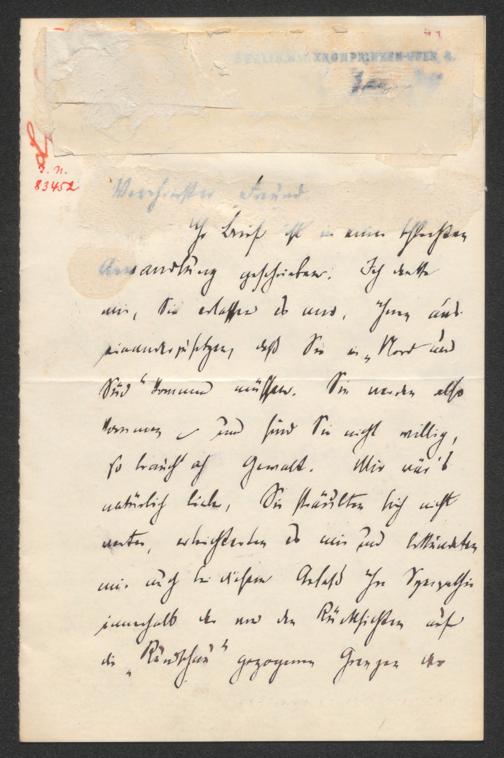 KRONPRINZEN-UFER 4.
I. N.
83452
Verehrtester Freund
Ihr Brief ist in einer schlechten
Anwandlung geschrieben. Ich denke
mir, Sie erlassen es mir, Ihnen aus-
einanderzusetzen, daß Sie in „Nord und
Süd“ kommen müssen. Sie werden also
kommen – und sind Sie nicht willig,
so brauch ich Gewalt. Mir wär's
natürlich lieber, Sie sträubten sich nicht
weiter, erleichterten es mir und bekundeten
mir auch bei diesem Anlaß Ihre Sympathie
innerhalb der von den Rücksichten auf
die „Rundschau“ gezogenen Grenzen der